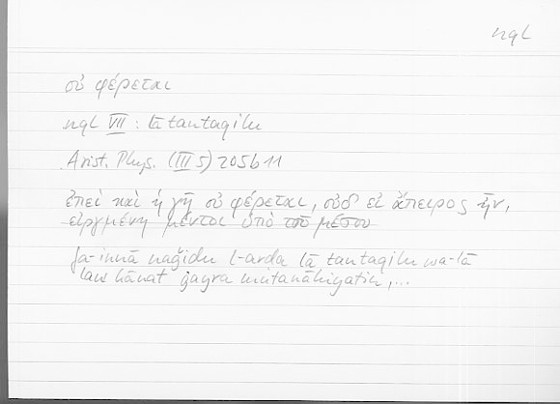 nql
οὐ φέρεται
nql VII : lā tantaqilu
Arist. Phys. (III 5) 205b11
ἐπεὶ καὶ ἡ γῆ οὐ φέρεται, οὐδ᾽ εἰ ἄπειρος ἦν,
εἰργμένη μέντοι ὑπὸ τοῦ μέσου
fa-innā naǧidu l-arḍa lā tantaqilu wa-lā
law kānat ġayra mutanāhiyatin, ...